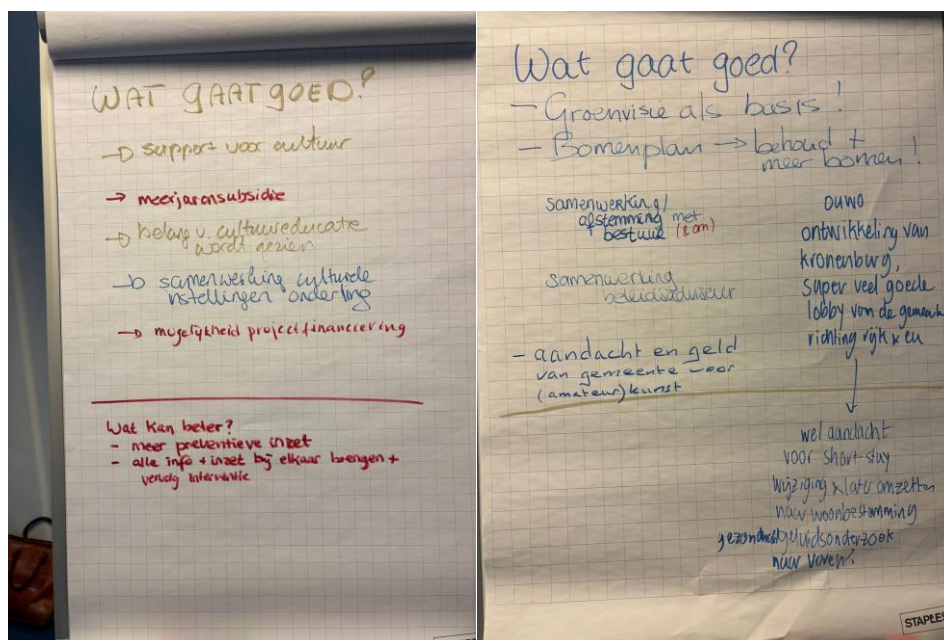 WAT GAAT GOED?
→ support voor cultuur
→ meerjarensubsidie
→ belang v. cultuureducatie
wordt gezien
→ samenwerking culturele
instellingen onderling
→ mogelijkheid projectfinanciering
Wat kan beter?
- meer preventieve inzet
- alle info + inzet bij elkaar brengen +
interventie
Wat gaat goed?
- Groenvisie als basis!
- Bomenplan → behoud +
meer bomen!
samenwerking/
afstemming met
bestuur
samenwerking
beleidsadviseur
- aandacht en geld
van gemeente voor
(amateur)kunst
DUWO
ontwikkeling van
kronenburg,
super veel goede
lobby van de gemeente
richting rijk x en
wel aandacht
voor short-stay
wijziging x later omzetten
naar woonbestemming
geluidsonderzoek
naar voren?
STAPLES